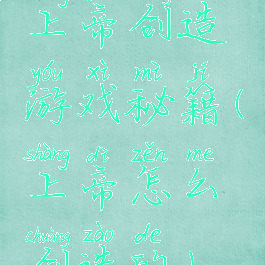 上帝创造
yóu xì mì jí
游戏秘籍(
shàng dì zěn me
上帝怎么
chuàng zào de
创造的)